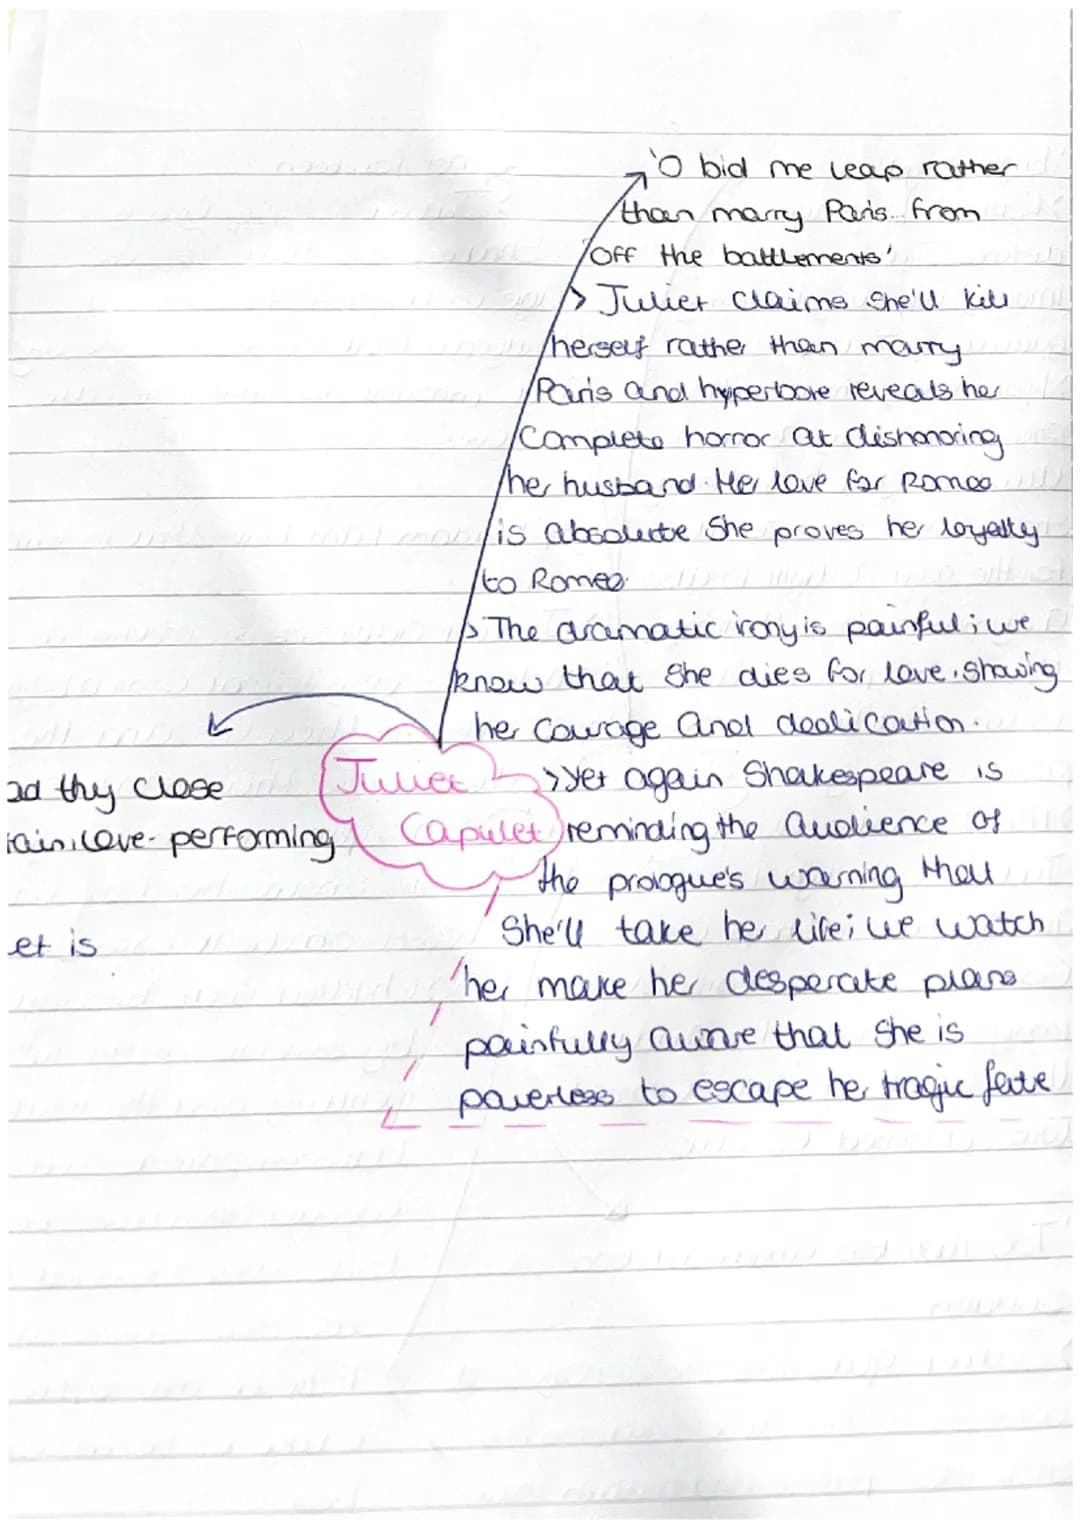 'O bid me leap rather
than marry Paris.. from
off the battlements'
> Juliet claims she'll kill
herself rather than marry
Paris and hyperbole reveals her
complete horror at dishonoring
her husband. Her love for Romeo
is absolute she proves her loyalty
to Romeo.
> The dramatic irony is painful; we
know that she dies for love. showing
her courage and dedication.
> Yet again Shakespeare is
reminding the audience of
the prologue's warning that
She'll take her life; we watch
her make her desperate plans
painfully aware that she is
powerless to escape her tragic fate
Juliet
Capulet
ad thy close
tain, love-performing
et is